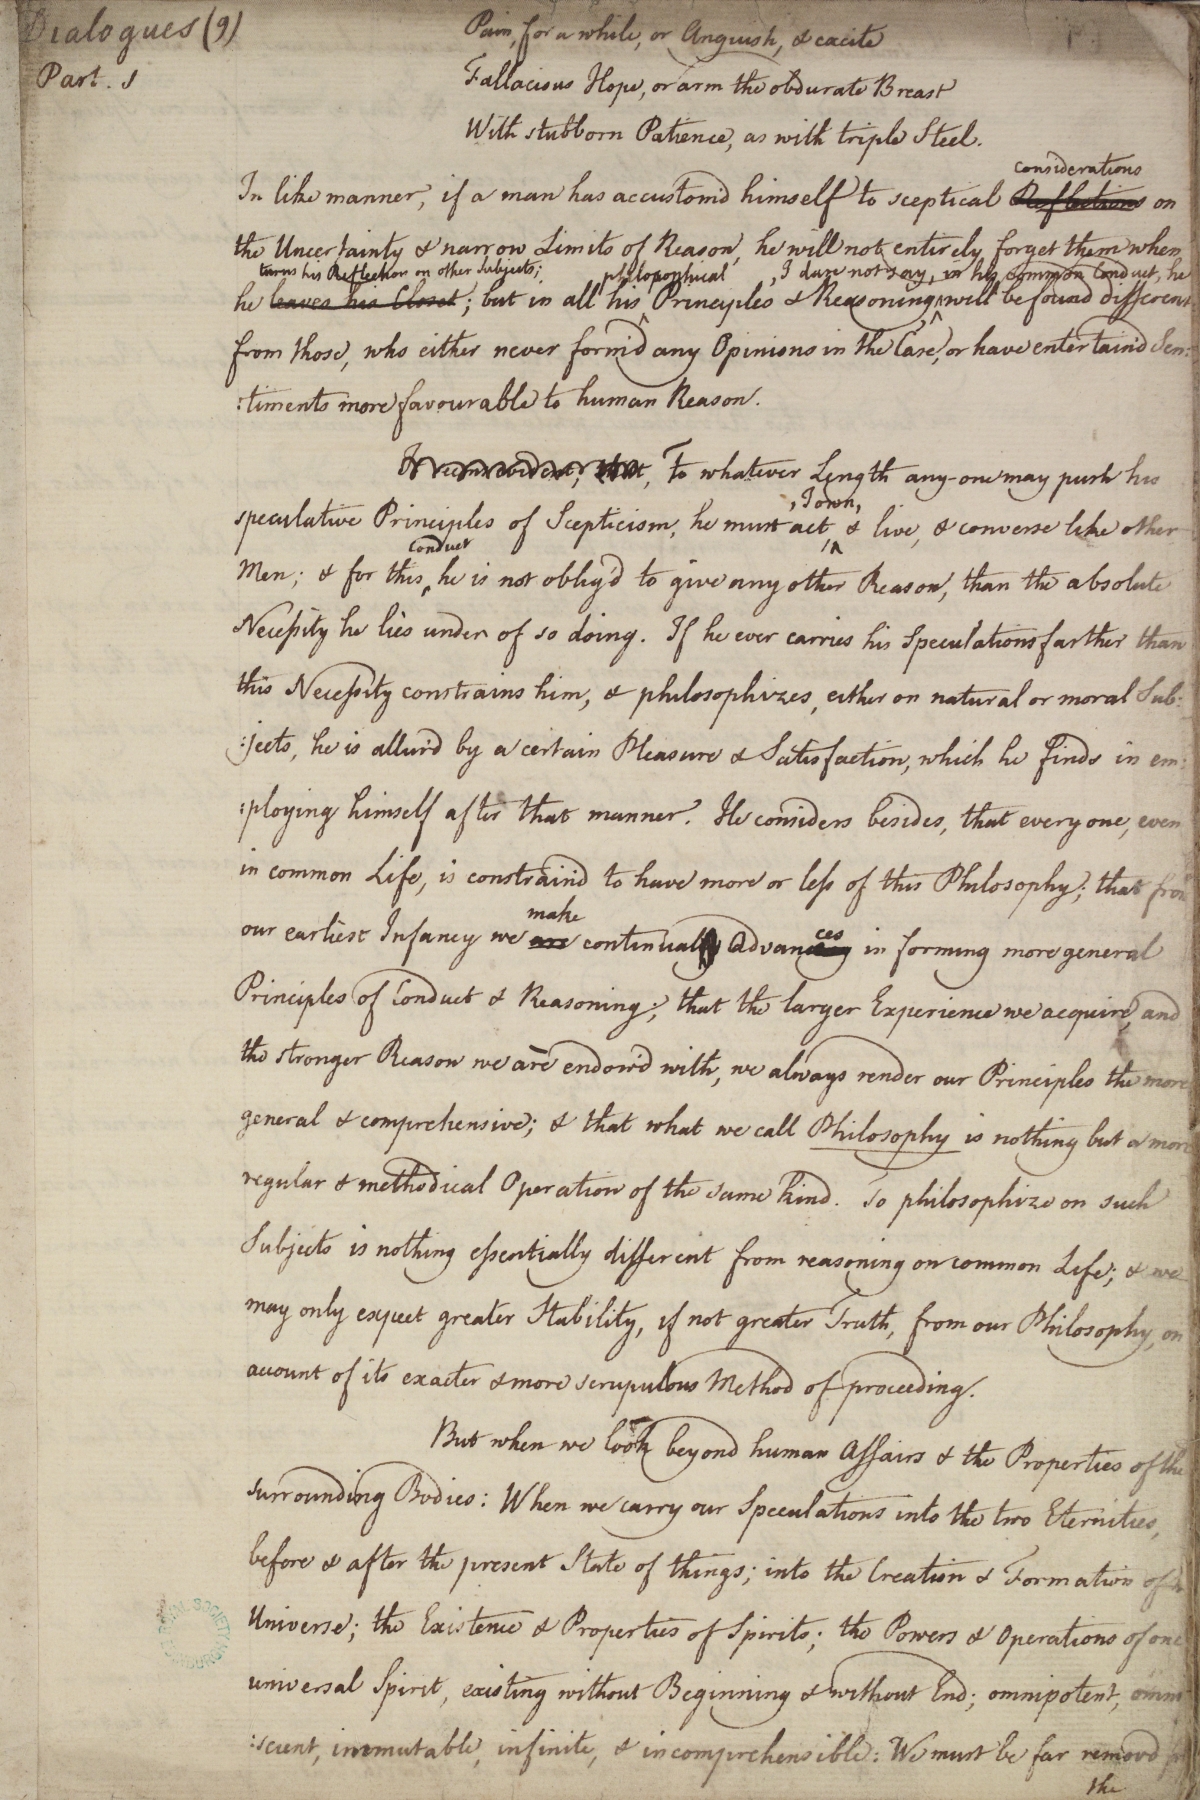 Dialogues (9)
Part. 1
Pain, for a while, or Anguish, & excite
Fallacious Hope, or arm the obdurate Breast
With stubborn Patience, as with triple Steel.
considerations
In like manner, if a man has accustom'd himself to sceptical Reflections on
the Uncertainty & narrow Limits of Reason, he will not entirely forget them when
turns his Reflection on other Subjects; philosophical , I dare not say, in his common Conduct, he
he leaves his Closet; but in all his Principles & Reasoning, will be found different
from those, who either never form'd any Opinions in the Case, or have entertain'd Sen:
:timents more favourable to human Reason.
To whatever Length any-one may push his
, I own,
speculative Principles of Scepticism, he must act & live, & converse like other
Conduct
Men; & for this, he is not oblig'd to give any other Reason, than the absolute
Necessity he lies under of so doing. If he ever carries his Speculations farther than
this Necessity constrains him, & philosophizes, either on natural or moral Sub:
:jects, he is allur'd by a certain Pleasure & Satisfaction, which he finds in em:
:ploying himself after that manner. He considers besides, that every one, even
in common Life, is constrain'd to have more or less of this Philosophy; that from
make
our earliest Infancy we are continual Advances in forming more general
Principles of Conduct & Reasoning; that the larger Experience we acquire, and
the stronger Reason we are endow'd with, we always render our Principles the more
general & comprehensive; & that what we call Philosophy is nothing but a more
regular & methodical Operation of the same kind. To philosophize on such
Subjects is nothing essentially different from reasoning on common Life; & we
may only expect greater Stability, if not greater Truth, from our Philosophy, on
account of its exacter & more scrupulous Method of proceeding.
But when we look beyond human Affairs & the Properties of the
surrounding Bodies: When we carry our Speculations into the two Eternities,
before & after the present State of things; into the Creation & Formation of
Universe; the Existence & Properties of Spirits; the Powers & Operations of one
universal Spirit, existing without Beginning & without End; omnipotent, omni
:scient, immutable, infinite, & incomprehensible: We must be far remov'd
the